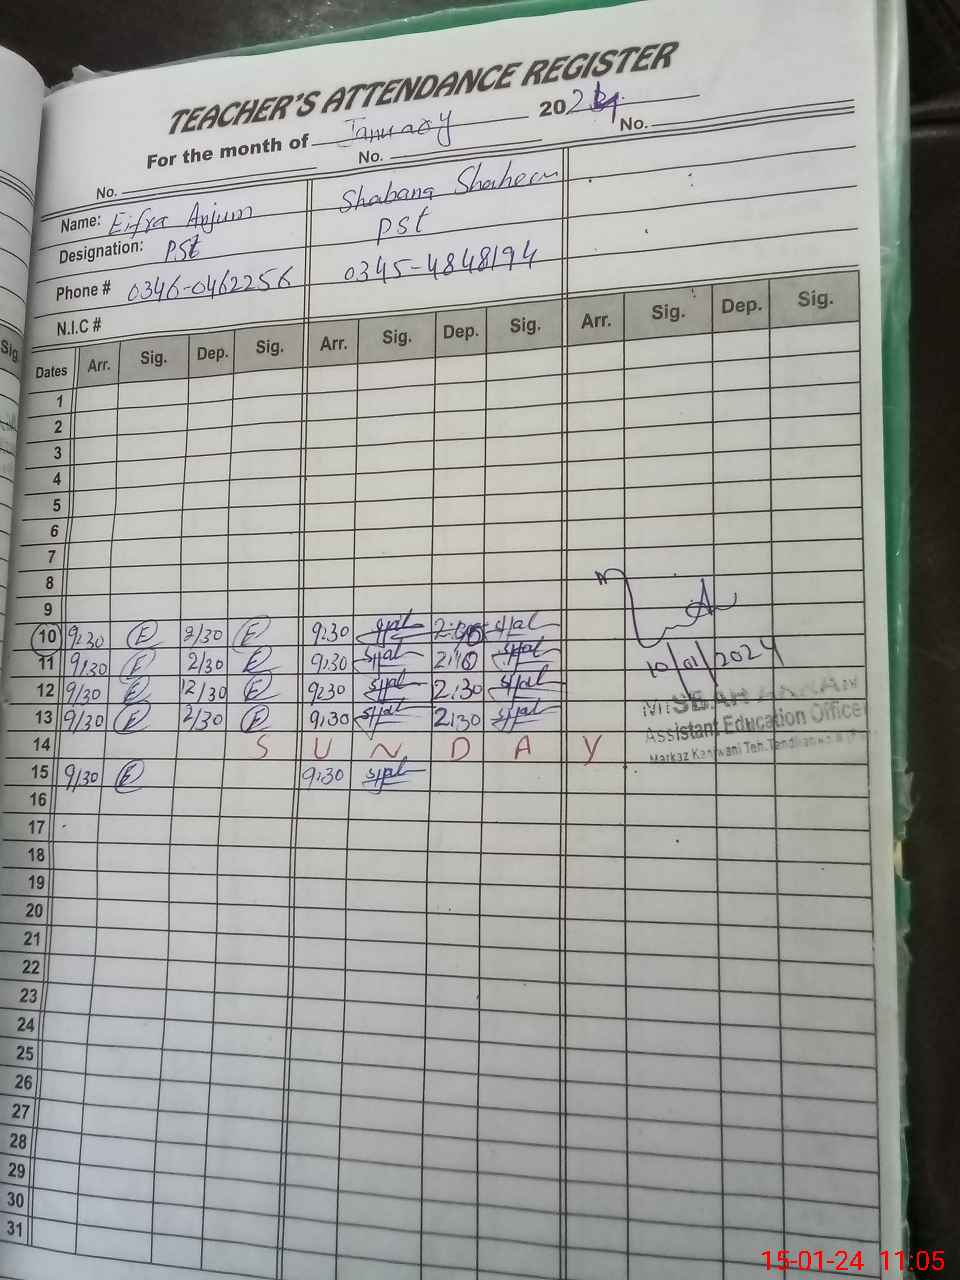 TEACHER'S ATTENDANCE REGISTER
For the month of January 2024
No. No. No.
Name: Eifra Anjum Shabana Shaheen
Designation: PSt PSt
Phone # 0346-0462256 0345-4848194
N.I.C #
Dates Arr. Sig. Dep. Sig. Arr. Sig. Dep. Sig. Arr. Sig. Dep. Sig.
1
2
3
4
5
6
7
8
9
10 9:30 E 2/30 E 9:30
11 9/30 E 2/30 E 9:30 10/01/2024
12 9/30 E 12/30 E 9:30 2:30
13 9/30 E 2/30 E 9:30 2:30 Assistant Education Officer
14 S U N D A Y Markaz
15 9/30 E 9:30
16
17
18
19
20
21
22
23
24
25
26
27
28
29
30
31
Sig
15-01-24 11:05